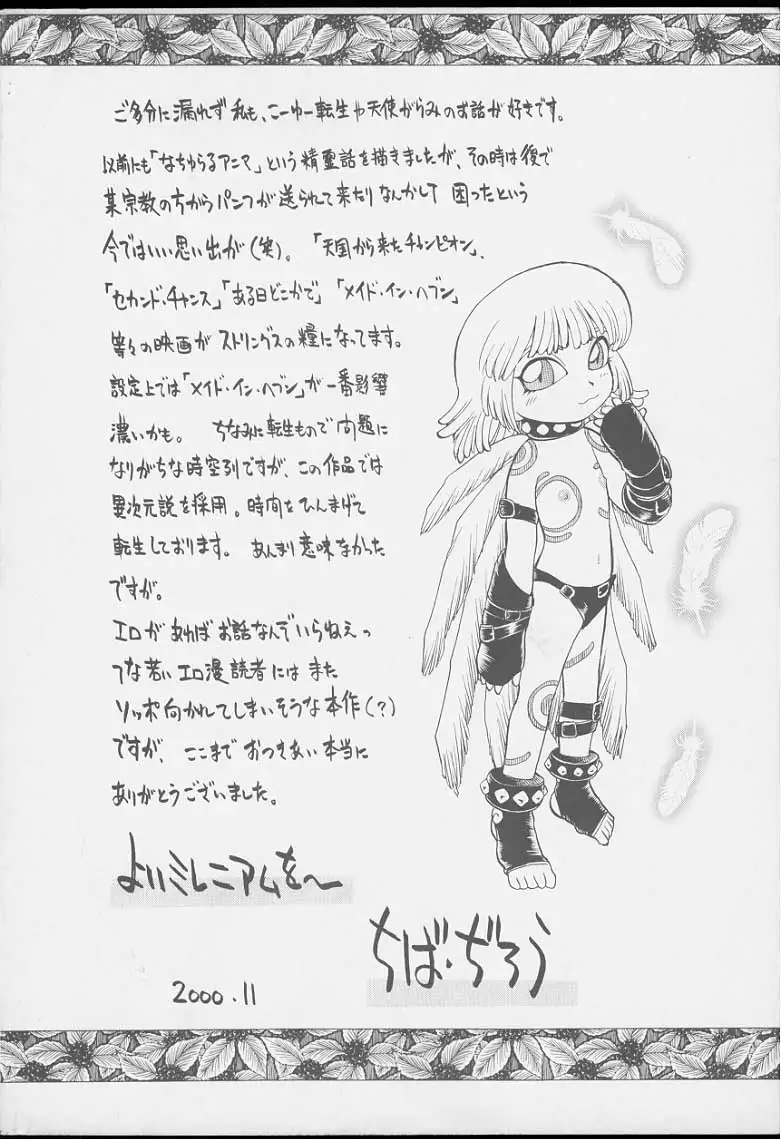 ご多分に漏れず私も、こーゆー転生や天使がらみのお話が好きです。
以前にも「なちゅらるアニマ」という精霊話を描きましたが、その時は後で
某宗教の方からパンフが送られて来たりなんかして 困ったという
今ではいい思い出が(笑)。 「天国から来たチャンピオン」、
「セカンド・チャンス」「ある日どこかで」 「メイド・イン・ヘブン」
等々の映画が ストリングスの糧になってます。
設定上では「メイド・イン・ヘブン」が一番影響
濃いかも。 ちなみに転生もので問題に
なりがちな時空列ですが、この作品では
異次元説を採用。時間をひんまげて
転生しております。 あんまり意味なかった
ですが。
エロがあればお話なんぞいらねえっ
てな若いエロ漫読者には また
ソッポ向かれてしまいそうな本作(?)
ですが、ここまでおつきあい本当に
ありがとうございました。
よいミレニアムを〜
ちば・ぢろう
2000.11